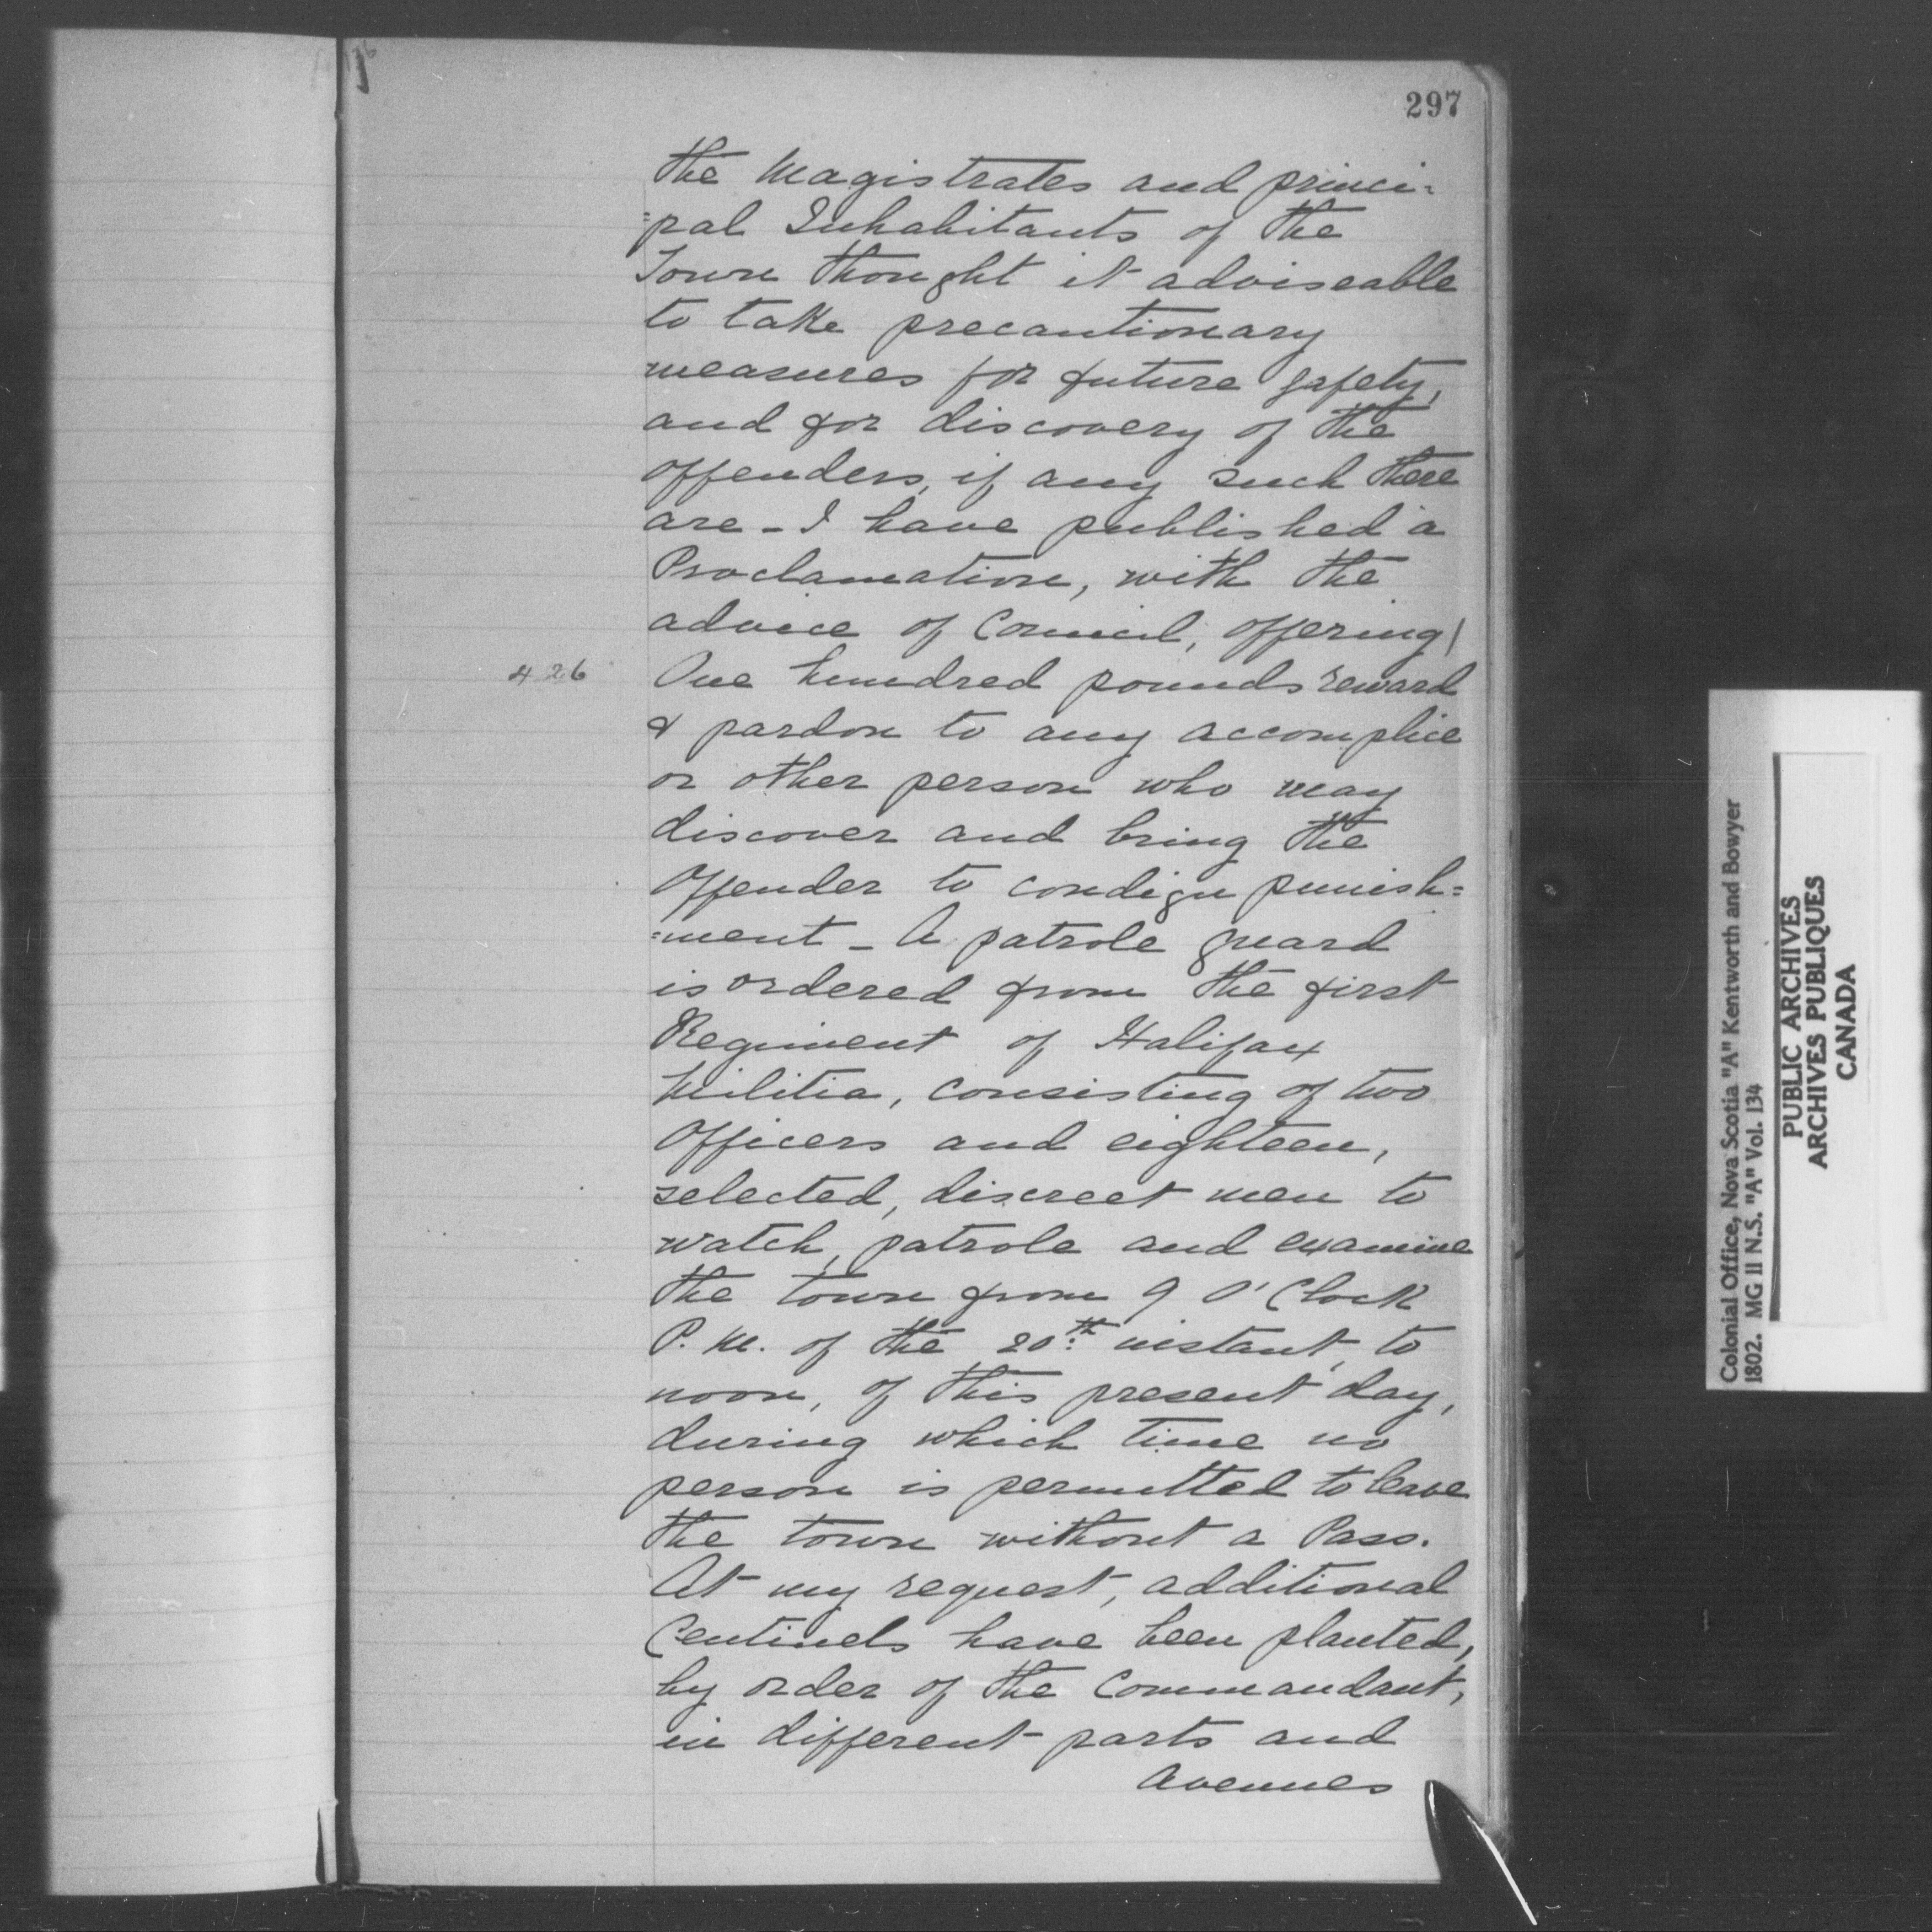 297
the Magistrates and princi-
=pal Inhabitants of the
Town thought it adviseable
to take precautionary
measures for future safety,
and for discovery of the
offenders, if any such there
are - I have published a
Proclamation, with the
advice of Council, offering
426
One hundred pounds reward
& pardon to any accomplice
or other person who may
discover and bring the
Offender to condign punish=
=ment - A patrole guard
is ordered from the first
Regiment of Halifax
Militia, consisting of two
Officers and eighteen,
selected, discreet men to
watch, patrole and examine
the town from 9 O'Clock
P.M. of the 20th instant, to
noon, of this present day,
during which time no
person is permitted to leave
the town without a Pass.
At my request, additional
Centinels have been planted,
by order of the Commandant,
in different parts and
Avenues
Colonial Office, Nova Scotia "A" Kentworth and Bowyer
1802. MG 11 N.S. "A" Vol. 134
PUBLIC ARCHIVES
ARCHIVES PUBLIQUES
CANADA